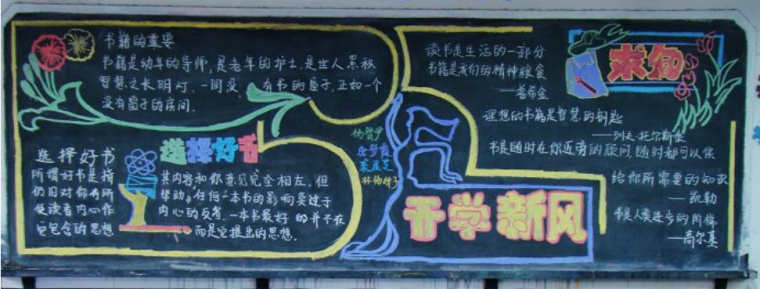 书籍的重要
书籍是幼年的导师，是老年的护士，是世人累积
智慧之长明灯．一间没有书的屋子，正如一个
没有窗子的房间．
选择好书
选择好书
所谓好书是指
仍旧对你有所
使读者内心作
它包含的思想
其内容和你意见完全相左，但
帮助．任何一本书的影响莫过于
内心的反省．一本书最好的并不在
而是它提出的思想．
开学新风
求知
读书是生活的一部分
书籍是我们的精神粮食
理想的书籍是智慧的钥匙
——列夫.托尔斯泰
书是随时在你近旁的顾问，随时都可以供
给你所需要的知识
——凯勒
书是人类进步的阶梯
——高尔基